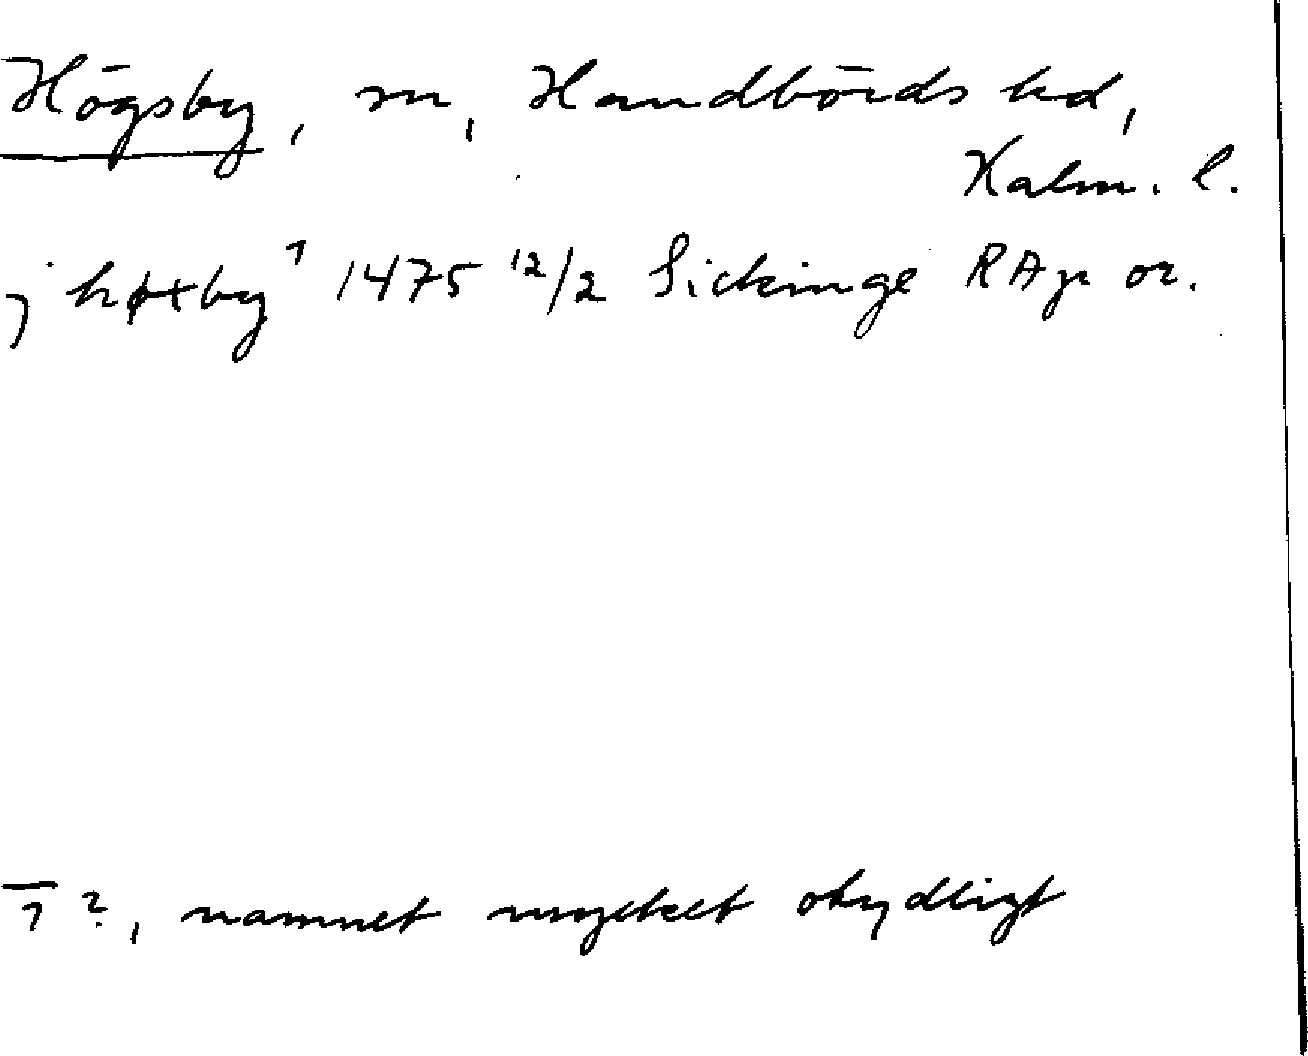 Högsby, sn, Handbörds hd,
Kalm. l.
j høxby ¹ 1475 12/2 Sickinge RAp or.
¹ ?, namnet mycket otydligt